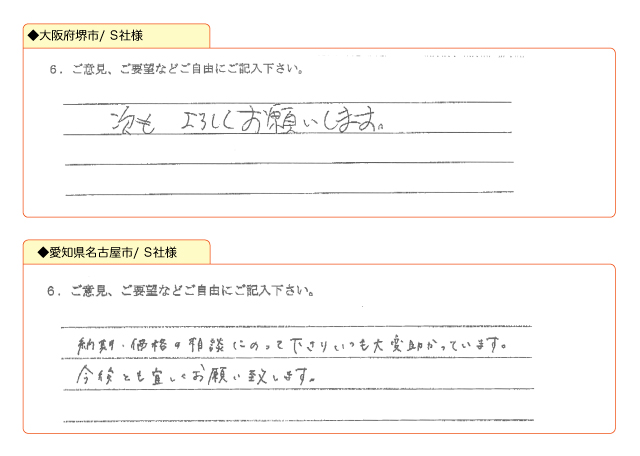 ◆大阪府堺市/ S社様
6．ご意見、ご要望などご自由にご記入下さい。
次も よろしくお願いします。
◆愛知県名古屋市/ S社様
6．ご意見、ご要望などご自由にご記入下さい。
納期・価格の相談にのって下さりいつも大変助かっています。
今後とも宜しくお願い致します。